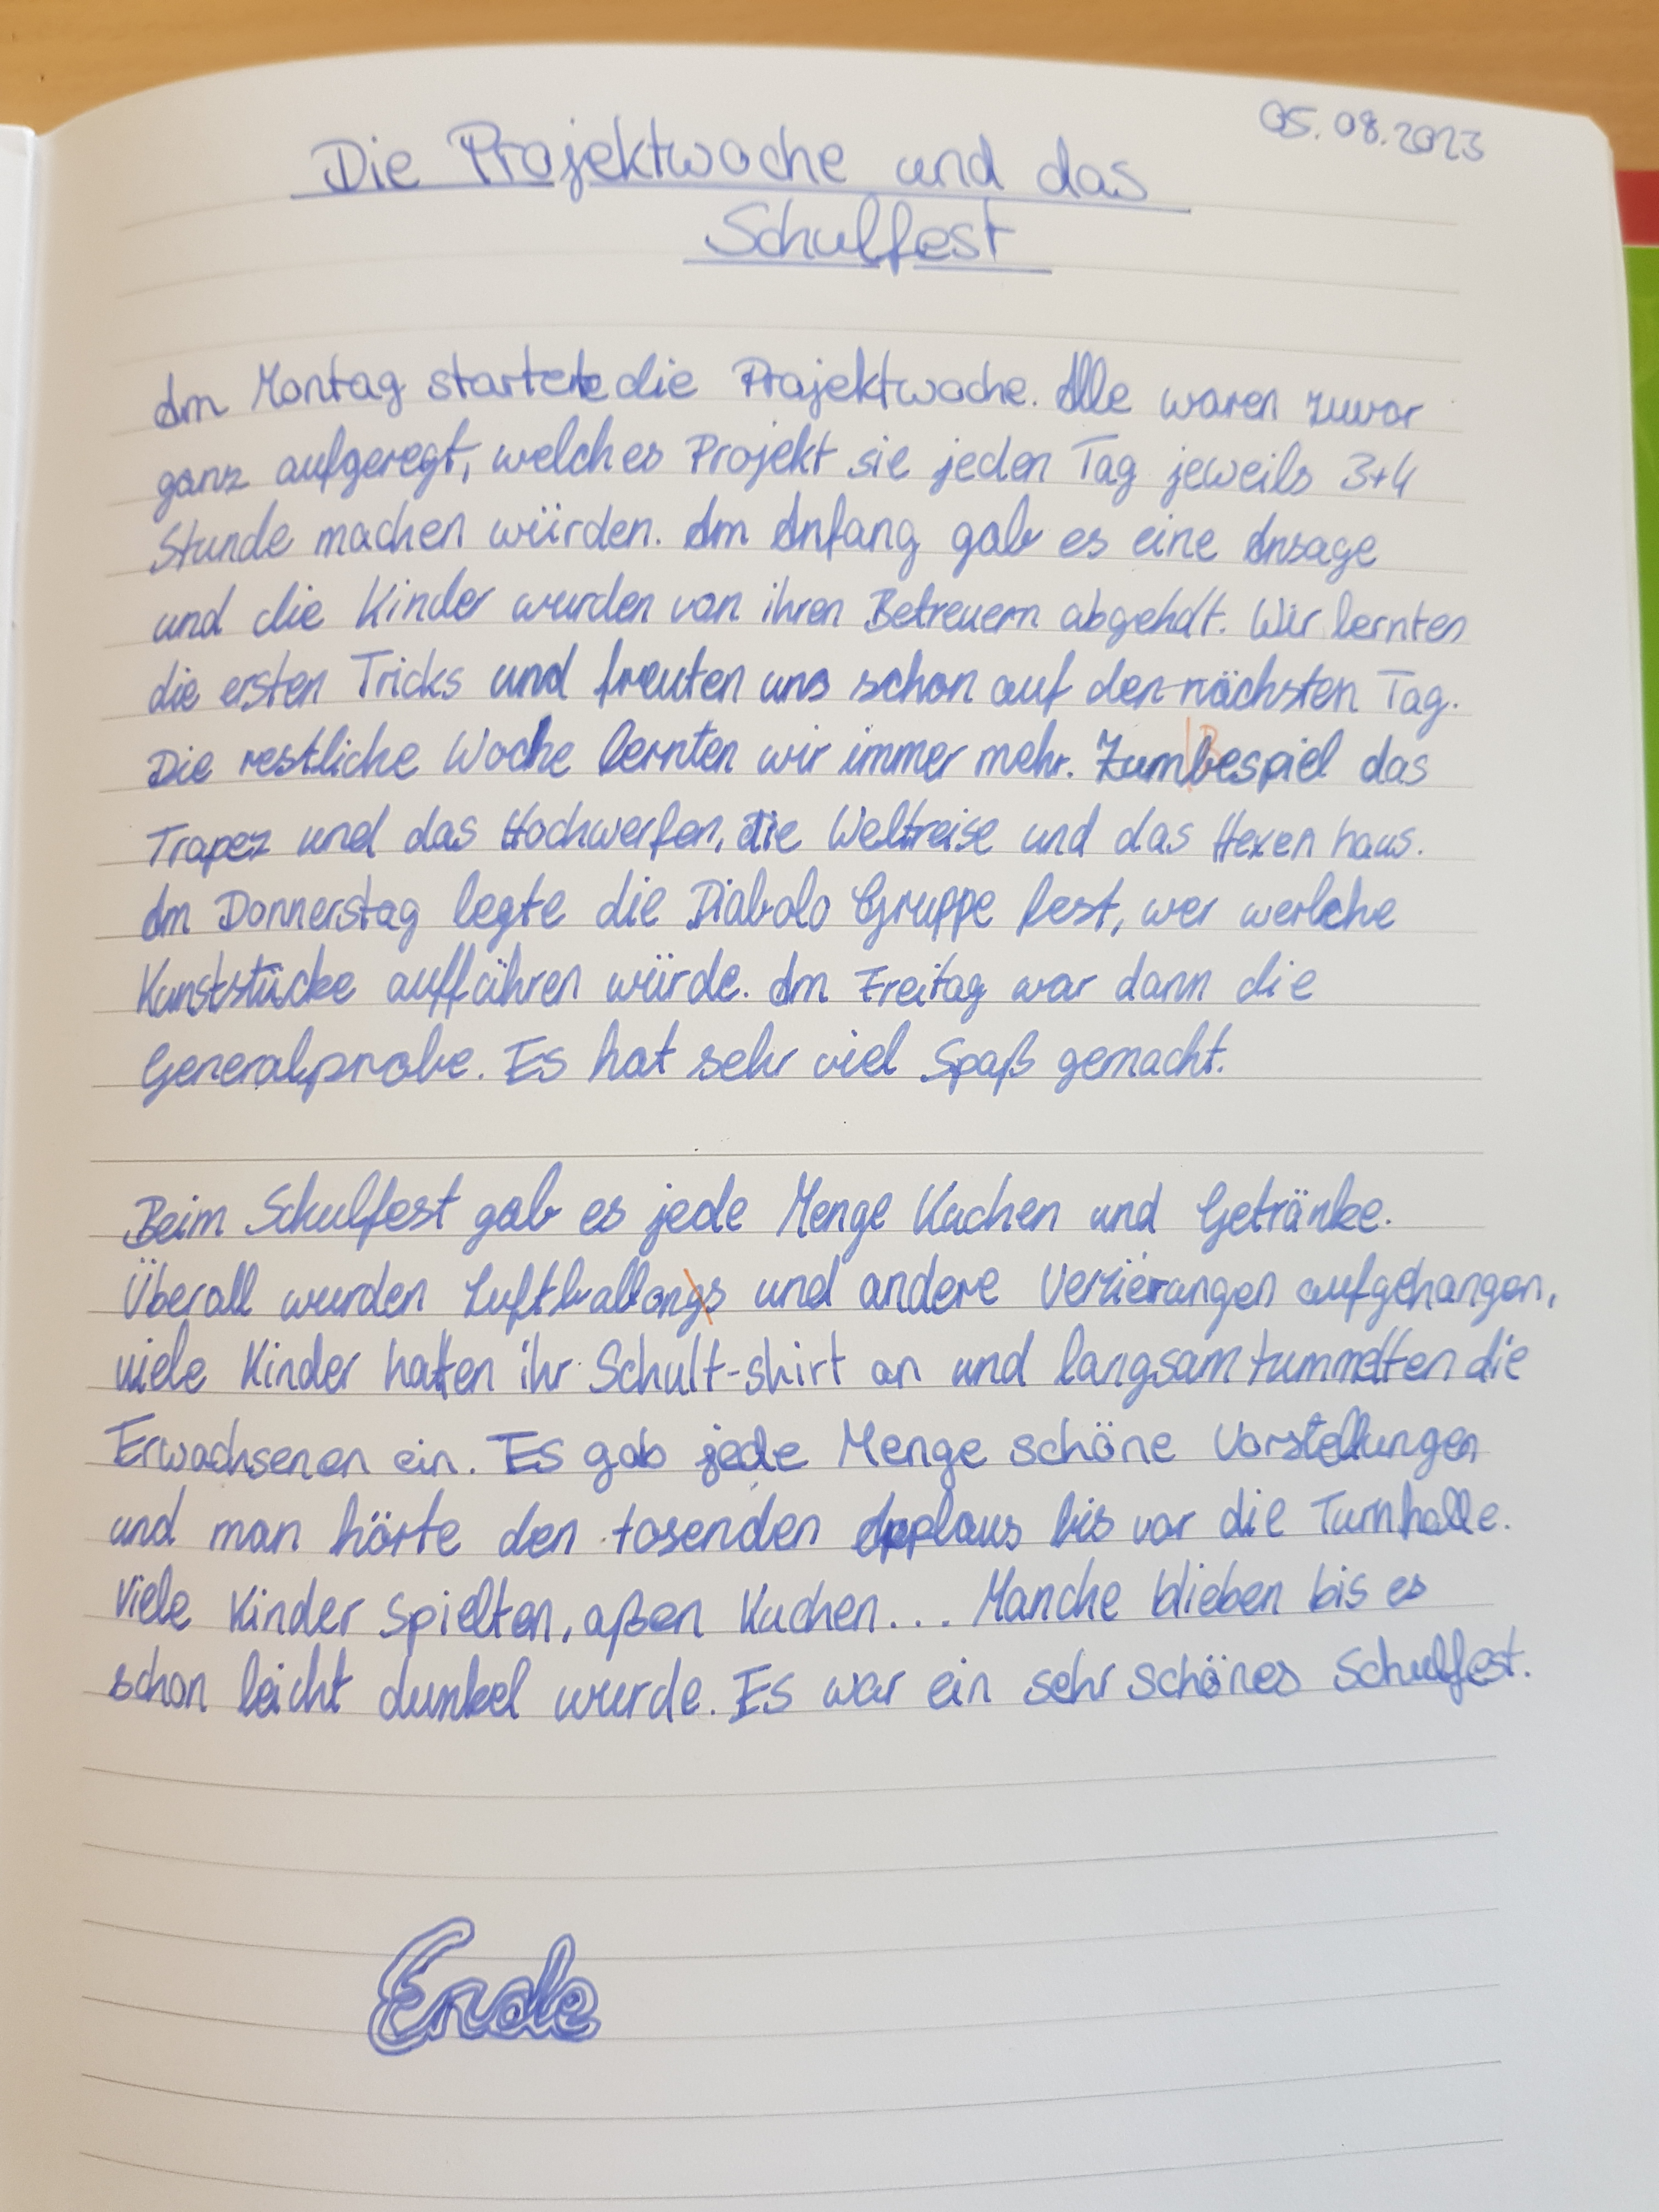 05.08.2023
Die Projektwoche und das
Schulfest
Am Montag startete die Projektwoche. Alle waren zuvor
ganz aufgeregt, welches Projekt sie jeden Tag jeweils 3+4
Stunde machen würden. Am Anfang gab es eine Ansage
und die Kinder wurden von ihren Betreuern abgeholt. Wir lernten
die ersten Tricks und freuten uns schon auf den nächsten Tag.
Die restliche Woche lernten wir immer mehr. Zumbespiel das
Trapez und das Hochwerfen, die Weltreise und das Hexenhaus.
Am Donnerstag legte die Diabolo Gruppe fest, wer welche
Kunststücke aufführen würde. Am Freitag war dann die
Generalprobe. Es hat sehr viel Spaß gemacht.
Beim Schulfest gab es jede Menge Kuchen und Getränke.
Überall wurden Luftballongs und andere Verzierungen aufgehangen,
viele Kinder hatten ihr Schult-shirt an und langsam tummelten die
Erwachsenen ein. Es gab jede Menge schöne Vorstellungen
und man hörte den tosenden Applaus bis vor die Turnhalle.
Viele Kinder spielten, aßen Kuchen... Manche blieben bis es
schon leicht dunkel wurde. Es war ein sehr schönes Schulfest.
Ende